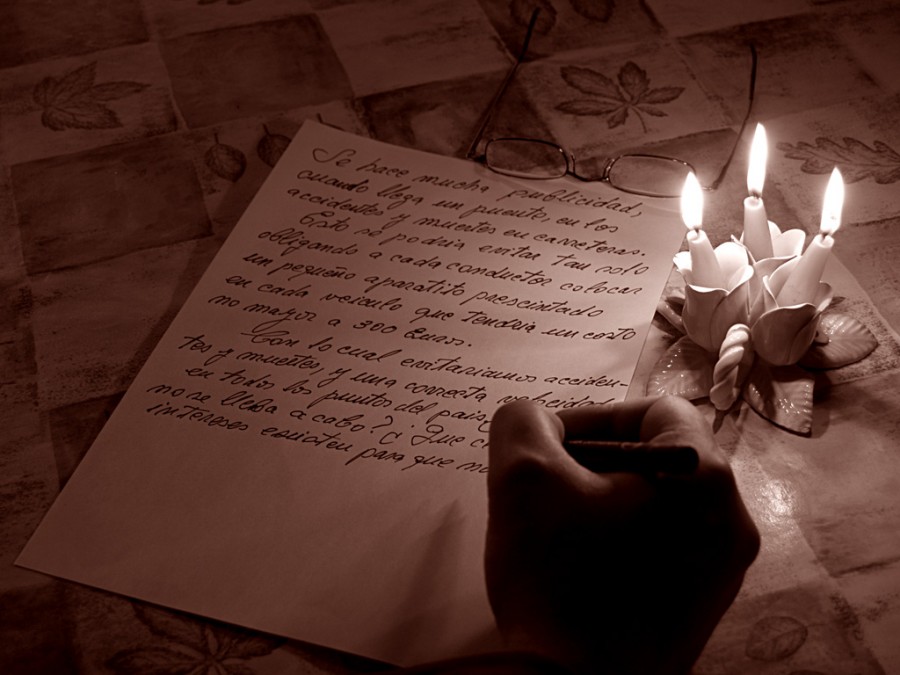 Se hace mucha publicidad,
cuando llega un puente en los
accidentes y muertes en carreteras.
Esto se podria evitar tan solo
obligando a cada conductor colocar
un pequeño aparatito prescintado
en cada veiculo que tendria un costo
no mayor a 300 Euros.
Con lo cual evitariamos acciden-
tes y muertes, y una correcta velocidad
en todos los puntos del pais,
no se lleba a cabo? ¿ Que
intereses existen para que no